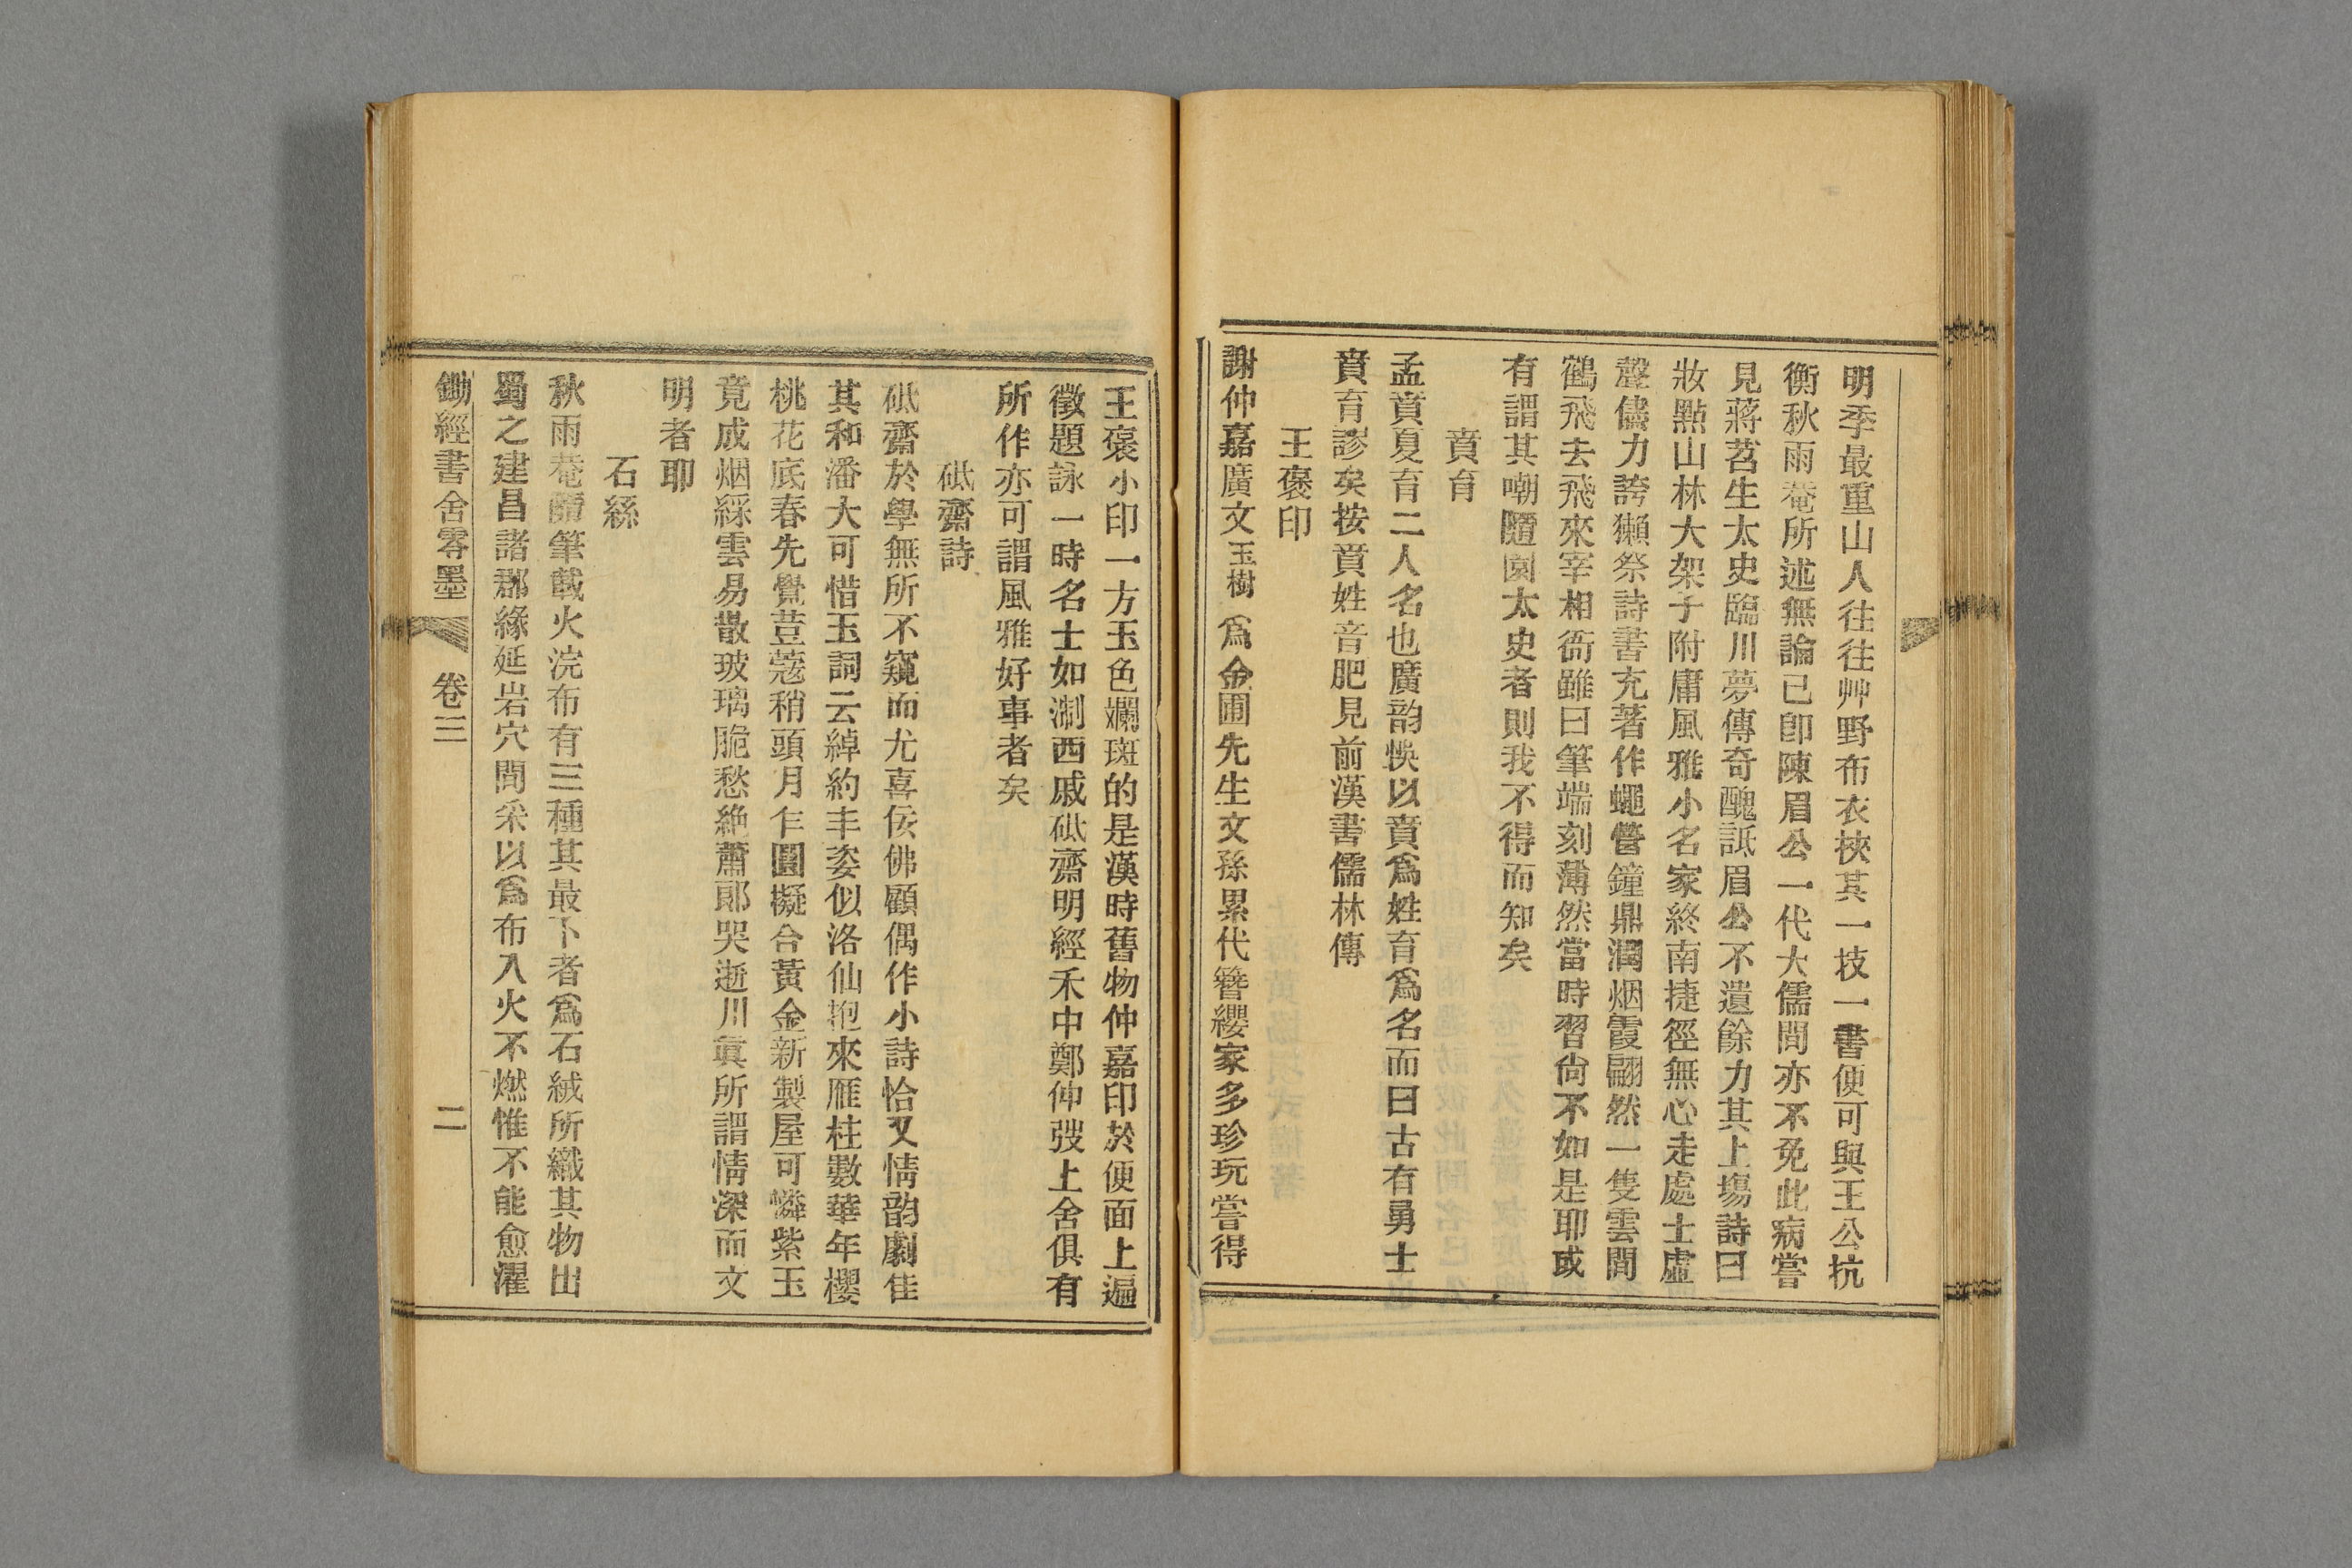 明季最重山人往往艸野布衣挾其一技一書便可與王公抗
衡秋雨菴所述無論已卽陳眉公一代大儒間亦不免此病嘗
見蔣苕生太史臨川夢傳奇醜詆眉公不遺餘力其上塲詩曰
妝點山林大架子附庸風雅小名家終南捷徑無心走處士虛
聲儘力誇獺祭詩書充著作蠅營鐘鼎潤烟霞翩然一隻雲間
鶴飛去飛來宰相衙雖曰筆端刻薄然當時習尙不如是耶或
有謂其嘲隨園太史者則我不得而知矣
賁育
孟賁夏育二人名也廣韵悞以賁爲姓育爲名而曰古有勇士
賁育謬矣按賁姓音肥見前漢書儒林傳
王褒印
謝仲嘉廣文玉樹爲金圃先生文孫累代簪纓家多珍玩嘗得
王褒小印一方玉色斕斑的是漢時舊物仲嘉印於便面上遍
徵題詠一時名士如澍西戚砥齋明經禾中鄭仲弢上舍俱有
所作亦可謂風雅好事者矣
砥齋詩
砥齋於學無所不窺而尤喜佞佛顧偶作小詩恰又情韵劇佳
其和潘大可惜玉詞云綽約丰姿似洛仙抱來雁柱數華年櫻
桃花底春先覺荳蔻稍頭月乍圓擬合黃金新製屋可憐紫玉
竟成烟綵雲易散玻璃脆愁絶蕭郞哭逝川眞所謂情深而文
明者耶
石絲
秋雨菴隨筆載火浣布有三種其最下者爲石絨所織其物出
蜀之建昌諸郡緣延岩穴間采以爲布入火不燃惟不能愈濯
鋤經書舍零墨 卷三 二